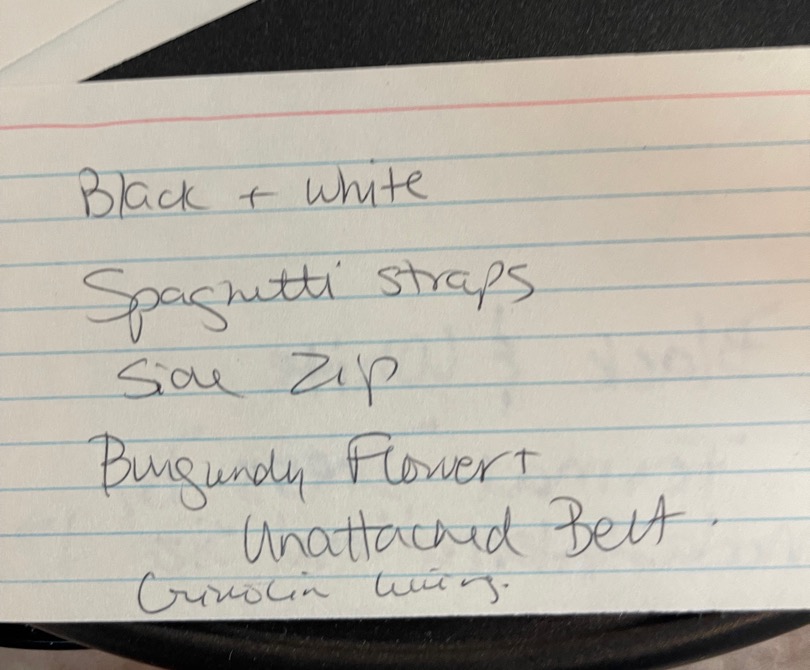 Black + White
Spaghetti straps
Side Zip
Burgundy Flower +
Unattached Belt.
Crinolin lining.